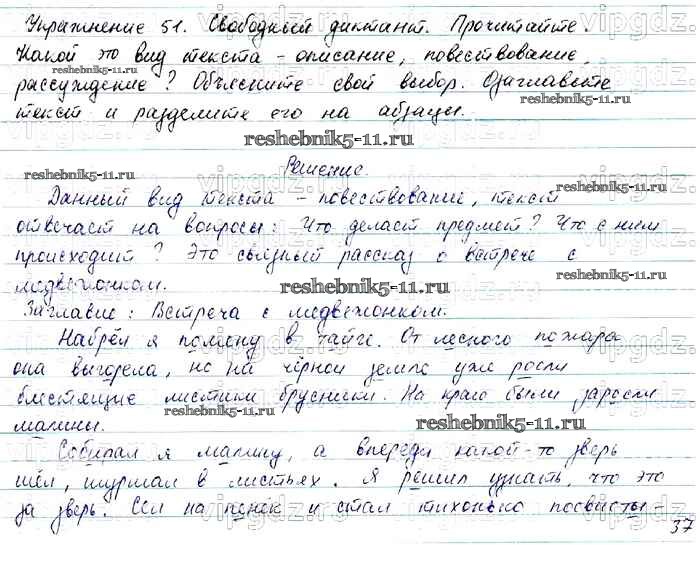 Упражнение 51. Свободный диктант. Прочитайте.
Какой это вид текста - описание, повествование,
рассуждение? Объясните свой выбор. Озаглавьте
текст и разделите его на абзацы.
Решение.
Данный вид текста - повествование, текст
отвечает на вопросы: Что делает предмет? Что с ним
происходит? Это связный рассказ о встрече с
медвежонком.
Заглавие: Встреча с медвежонком.
Набрёл я поляну в тайге. От лесного пожара
она выгорела, но на чёрной земле уже росли
блестящие листики брусники. На краю были заросли
малины.
Собирал я малину, а впереди какой-то зверь
шёл, шуршал в листьях. Я решил узнать, что это
за зверь. Сел на пенёк и стал тихонько посвисты-
37
reshebnik5-11.ru
reshebnik5-11.ru
reshebnik5-11.ru
reshebnik5-11.ru
reshebnik5-11.ru
reshebnik5-11.ru
reshebnik5-11.ru
reshebnik5-11.ru